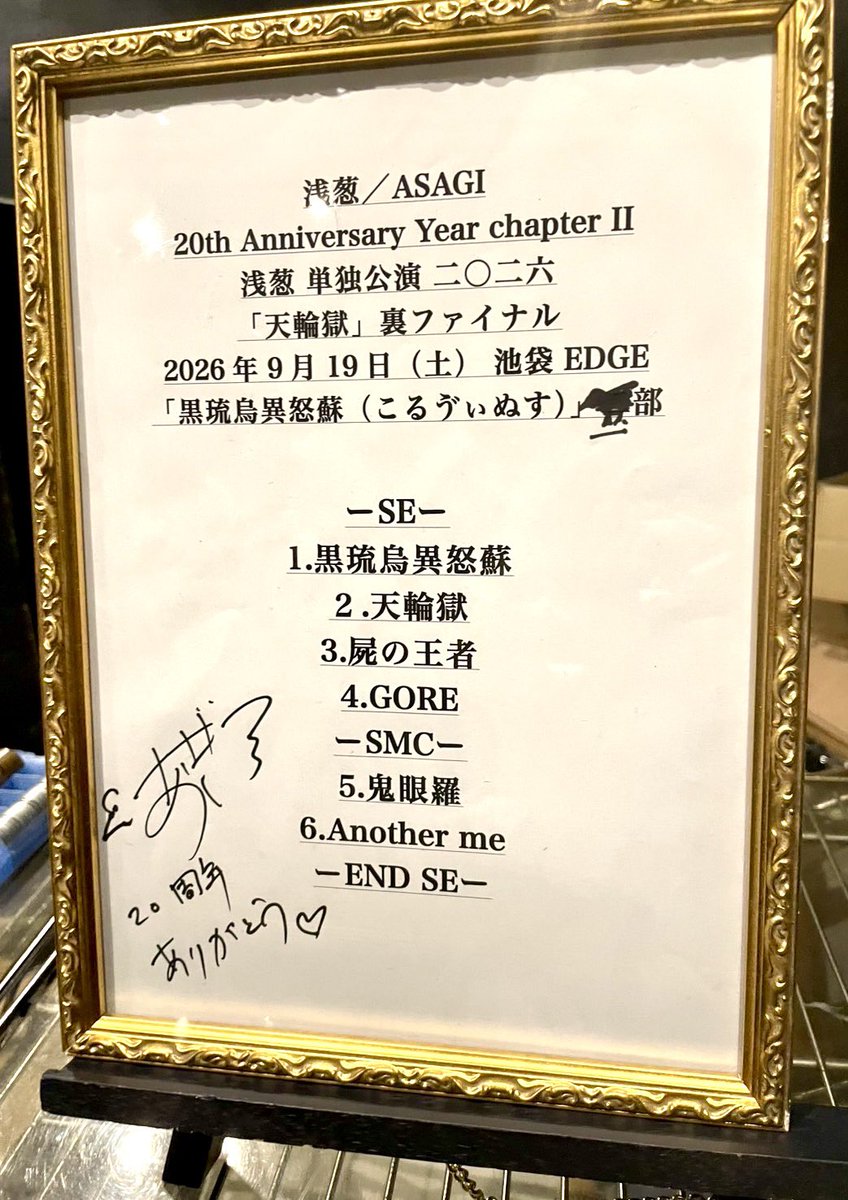 浅葱／ASAGI
20th Anniversary Year chapter II
浅葱 単独公演 二〇二六
「天輪獄」裏ファイナル
2026年9月19日（土） 池袋 EDGE
「黒琉烏異怒蘇（こるゔぃぬす）」部
ーSEー
1.黒琉烏異怒蘇
2.天輪獄
3.屍の王者
4.GORE
ーSMCー
5.鬼眼羅
6.Another me
ーEND SEー
20周年
ありがとう♡